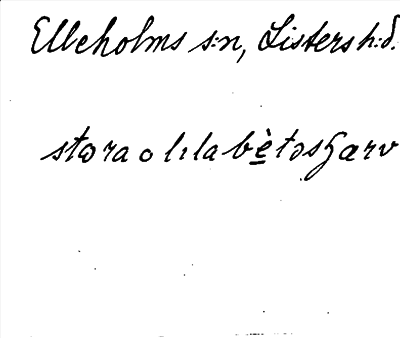 Elleholms s:n, Listers h:d.
stɷra o lıla bètəsʒærv